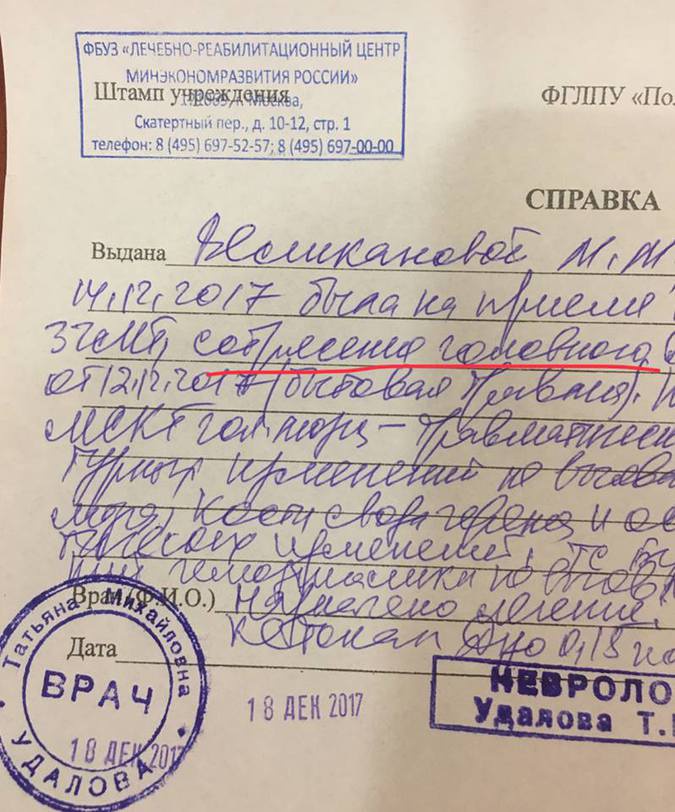 ФБУЗ «ЛЕЧЕБНО-РЕАБИЛИТАЦИОННЫЙ ЦЕНТР
МИНЭКОНОМРАЗВИТИЯ РОССИИ»
Штамп учреждения
Москва,
Скатертный пер., д. 10-12, стр. 1
телефон: 8 (495) 697-52-57; 8 (495) 697-00-00
ФГЛПУ «Пол
СПРАВКА
Выдана Великановой М. М
14.12.2017 была на приеме
ЗЧМТ, сотрясение головного
от 12.12.2017 (бытовая травма).
МСКТ гол. мозга – травматических
изменений не выявл
Кости свода черепа и ос
изменений.
не
Врач (Ф.И.О.) Назначено лечение:
Дата Кетонал Дуо 0,15
Татьяна Михайловна
ВРАЧ
УДАЛОВА
18 ДЕК 2017
18 ДЕК 2017
НЕВРОЛО
Удалова Т.